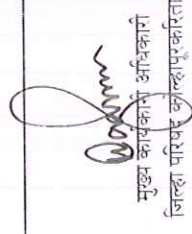 मुख्य कार्यकारी अधिकारी
जिल्हा परिषद कोल्हापूर करिता